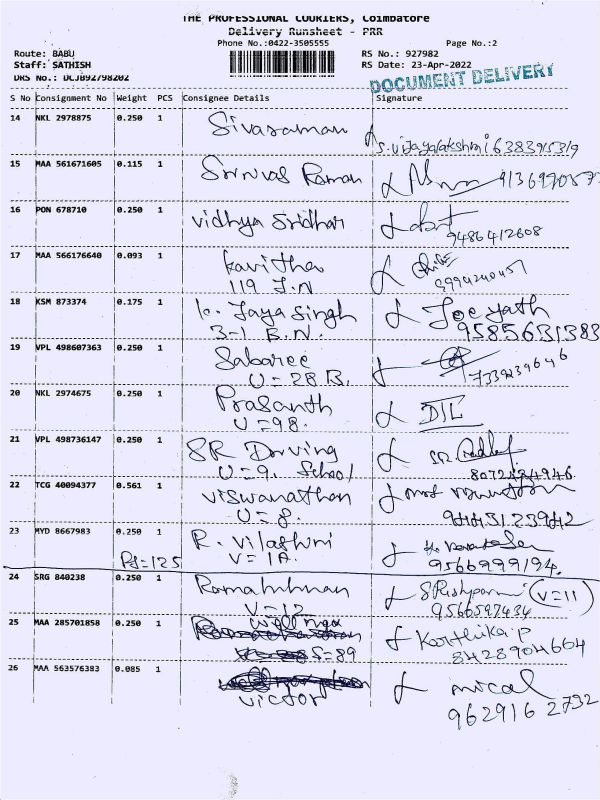 THE PROFESSIONAL COURIERS, Coimbatore
Delivery Runsheet - PRR
Phone No.:0422-3505555 Page No.:2
Route: BABU RS No.: 927982
Staff: SATHISH RS Date: 23-Apr-2022
DRS No.: DCJB92798202 DOCUMENT DELIVERY
S No Consignment No Weight PCS Consignee Details Signature
14 NKL 2978875 0.250 1 Sivasaman
S. vijayalakshmi 6383915319
15 MAA 561671605 0.115 1 Srinivas Raman
16 PON 678710 0.250 1 vidhya Sridhar
9486412608
17 MAA 566176640 0.093 1 kavitha
119 J.N 9994240457
18 KSM 873374 0.175 1 k. Jaya Singh
3-1 B.N. 9585631383
19 VPL 498607363 0.250 1 Sabaree
U = 28 B. 7339239646
20 NKL 2974675 0.250 1 Prasanth
U = 98.
21 VPL 498736147 0.250 1 SR Driving
U = 9. School
22 TCG 40094377 0.561 1 viswanathan
U = 8.
23 MYD 8667983 0.250 1 R. Vilashni
V = 1A. 9566999194.
24 SRG 840238 0.250 1 S Pushparani (V=11)
V = 12 9566597434
25 MAA 285701858 0.250 1 Karthika.p
S=89 8428904664
26 MAA 563576383 0.085 1 mical
victor 9629162732